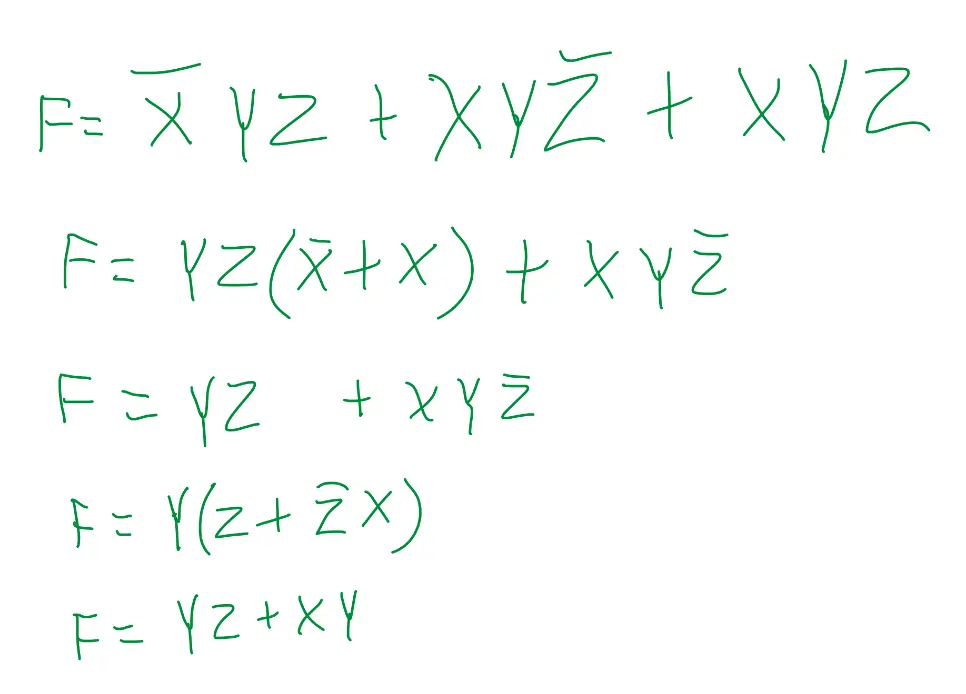 F= X̅YZ + XYZ̅ + XYZ
F= YZ(X̅+X) + XYZ̅
F = YZ + XYZ̅
F= Y(Z+Z̅X)
F= YZ+XY